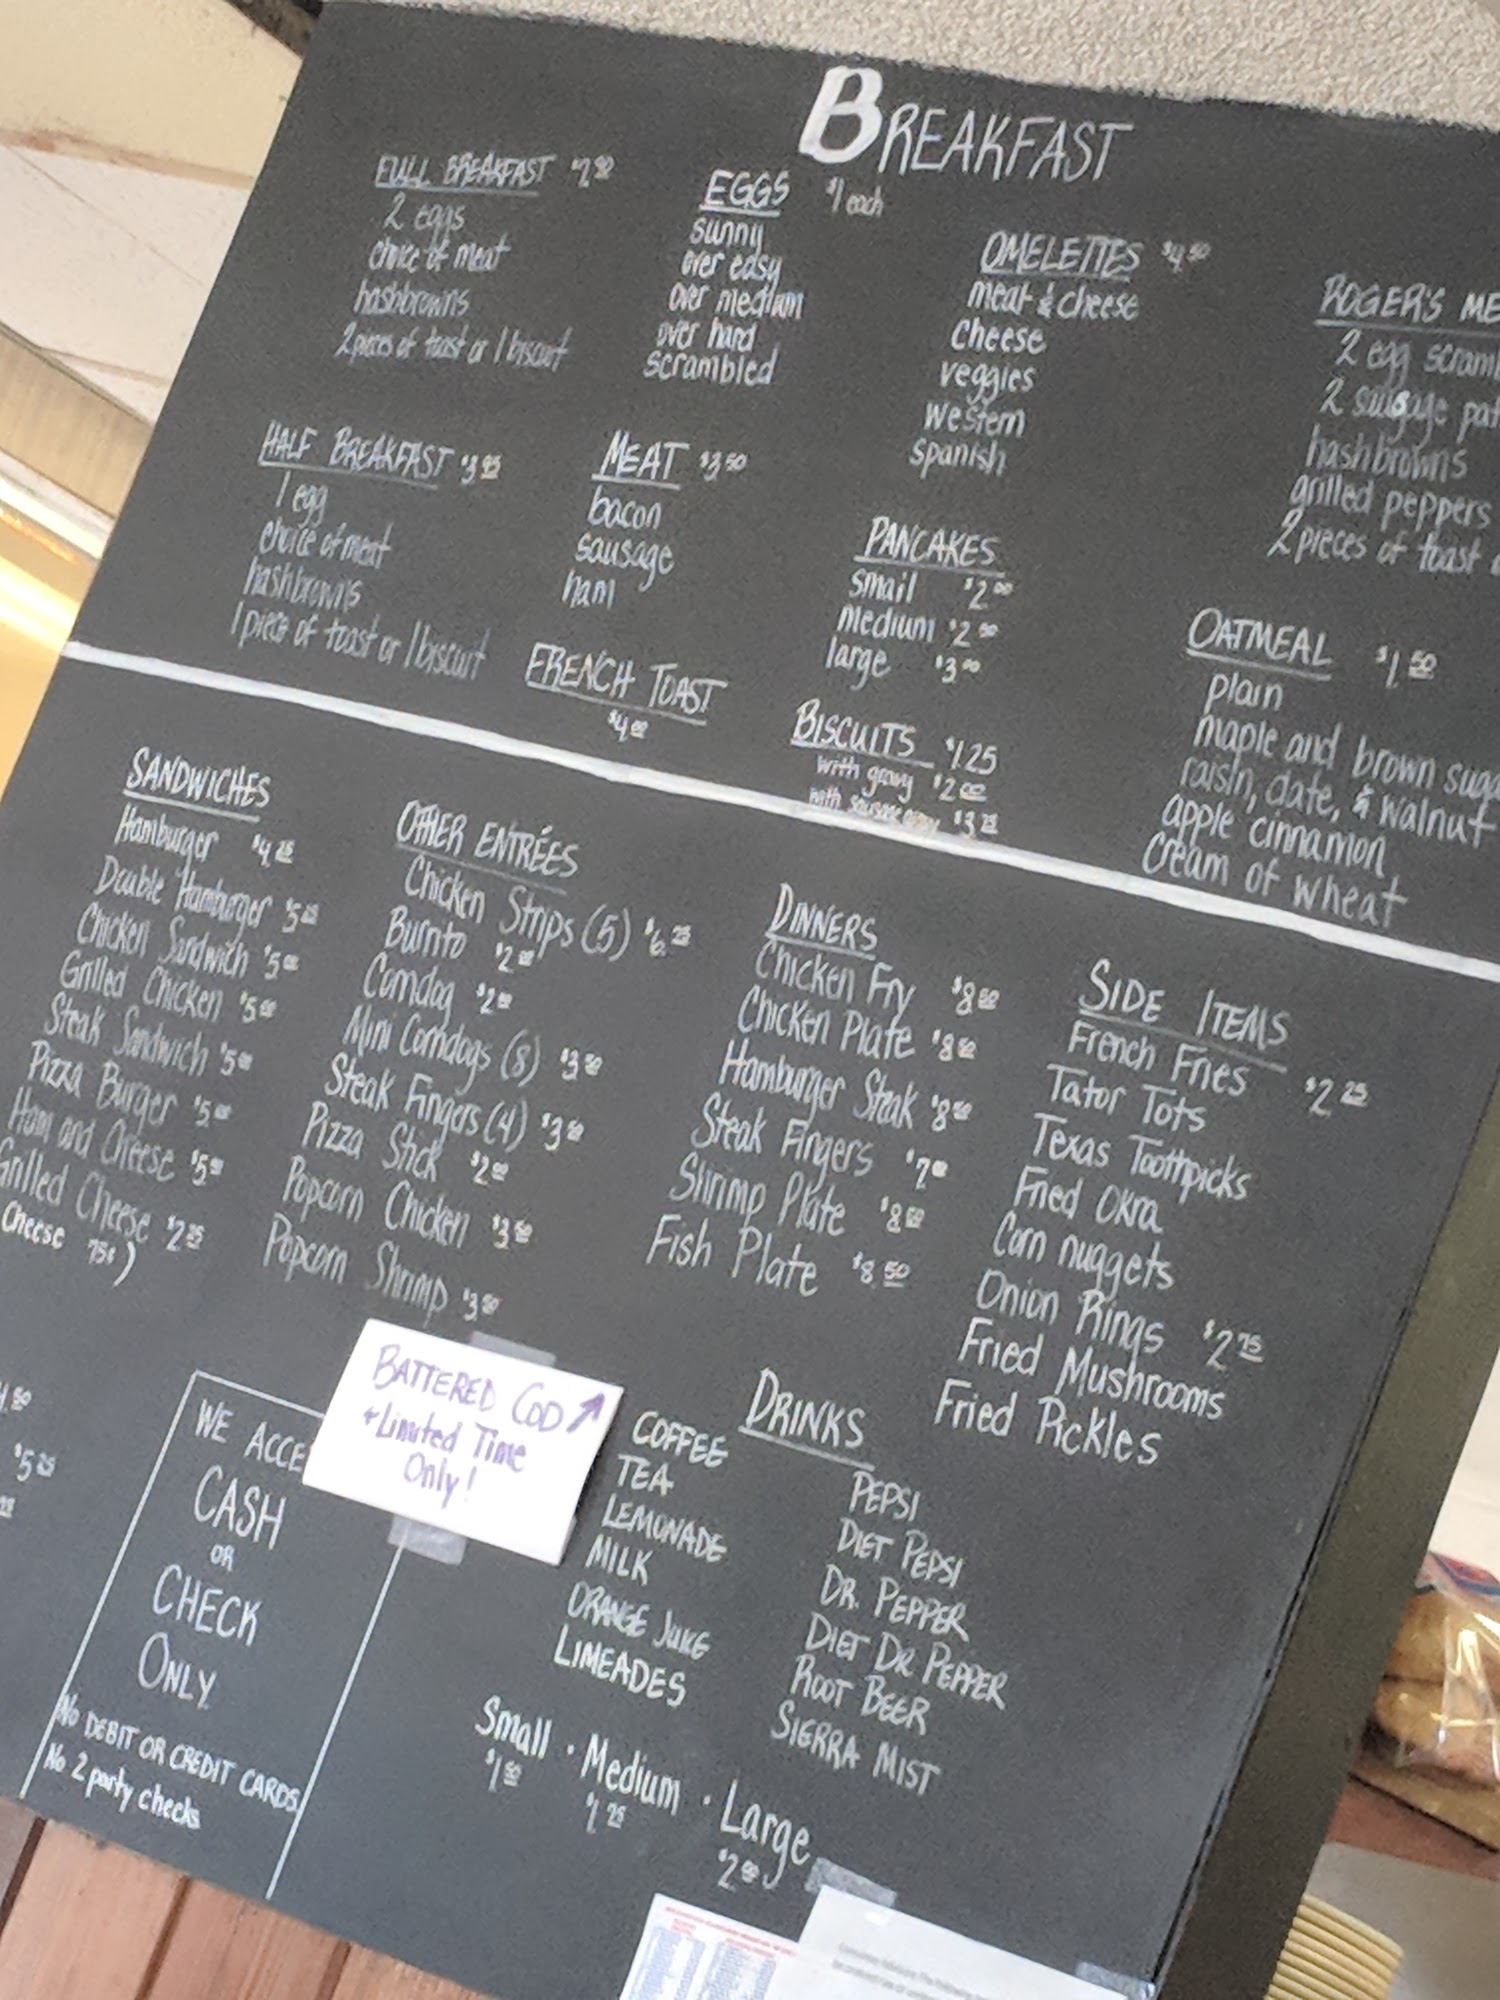 BREAKFAST
FULL BREAKFAST
2 eggs
choice of meat
hashbrowns
2 pieces of toast or 1 biscuit
HALF BREAKFAST $3.95
1 egg
choice of meat
hashbrowns
1 piece of toast or 1 biscuit
EGGS $1 each
sunny
over easy
over medium
over hard
scrambled
MEAT $3.50
bacon
sausage
ham
FRENCH TOAST
$4.00
OMELETTES $4.50
meat & cheese
cheese
veggies
western
spanish
PANCAKES
small $2.00
medium $2.50
large $3.00
BISCUITS $1.25
with gravy $2.00
with sausage gravy $3.25
ROGER'S
2 egg
2 sausage
hashbrowns
grilled peppers
2 pieces of toast
OATMEAL $1.50
plain
maple and brown
raisin, date, & walnut
apple cinnamon
cream of wheat
SANDWICHES
Hamburger $4.25
Double Hamburger
Chicken Sandwich $5.00
Grilled Chicken $5.00
Steak Sandwich $5.00
Pizza Burger $5.00
Ham and Cheese $5.00
Grilled Cheese $2.25
Cheese 75¢)
$5.25
OTHER ENTRÉES
Chicken Strips (5) $6.25
Burrito $2.00
Corndog $2.00
Mini Corndogs (8) $3.50
Steak Fingers (4) $3.50
Pizza Stick $2.00
Popcorn Chicken $3.50
Popcorn Shrimp $3.50
DINNERS
Chicken Fry $8.00
Chicken Plate $8.50
Hamburger Steak $8.50
Steak Fingers $7.00
Shrimp Plate $8.50
Fish Plate $8.50
SIDE ITEMS
French Fries $2.25
Tator Tots
Texas Toothpicks
Fried Okra
Corn nuggets
Onion Rings $2.75
Fried Mushrooms
Fried Pickles
BATTERED COD
Limited Time
Only!
WE ACCE
CASH
OR
CHECK
ONLY
NO DEBIT OR CREDIT CARDS
No 2 party checks
DRINKS
COFFEE
TEA
LEMONADE
MILK
ORANGE JUICE
LIMEADES
PEPSI
DIET PEPSI
DR. PEPPER
DIET DR PEPPER
ROOT BEER
SIERRA MIST
Small · Medium · Large
$1.50 $1.75 $2.00